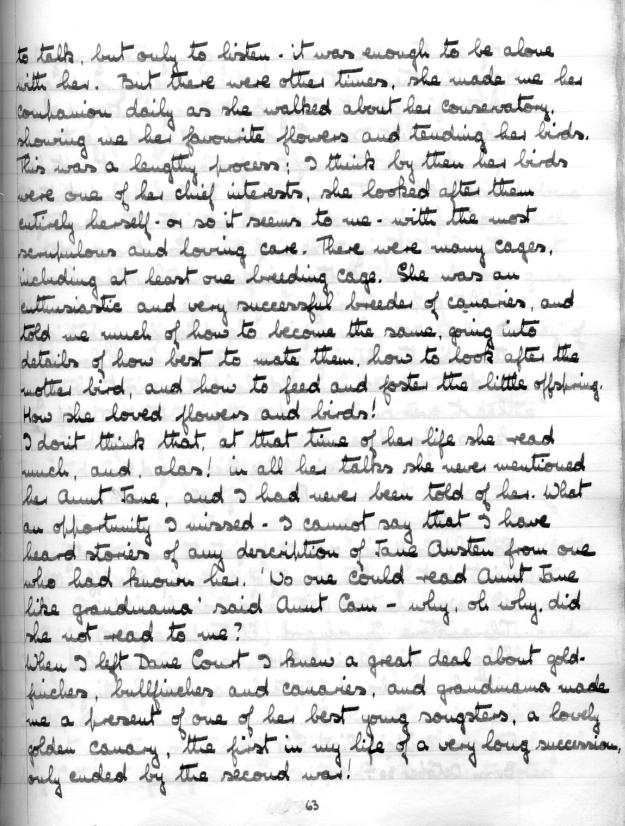 to talk, but only to listen - it was enough to be alone
with her. But there were other times, she made me her
companion daily as she walked about her conservatory,
showing me her favourite flowers and tending her birds.
This was a lengthy process; I think by then her birds
were one of her chief interests, she looked after them
entirely herself - or so it seems to me - with the most
scrupulous and loving care. There were many cages,
including at least one breeding cage. She was an
enthusiastic and very successful breeder of canaries, and
told me much of how to become the same, going into
details of how best to mate them, how to look after the
mother bird, and how to feed and foster the little offspring.
How she loved flowers and birds!
I don't think that, at that time of her life she read
much, and, alas! in all her talks she never mentioned
her Aunt Jane, and I had never been told of her. What
an opportunity I missed - I cannot say that I have
heard stories of any description of Jane Austen from one
who had known her. 'No one could read Aunt Jane
like grandmama' said Aunt Cam - why, oh why, did
she not read to me?
When I left Dane Court I knew a great deal about gold-
finches, bullfinches and canaries, and grandmama made
me a present of one of her best young songsters, a lovely
golden canary, the first in my life of a very long succession,
only ended by the second war!
63